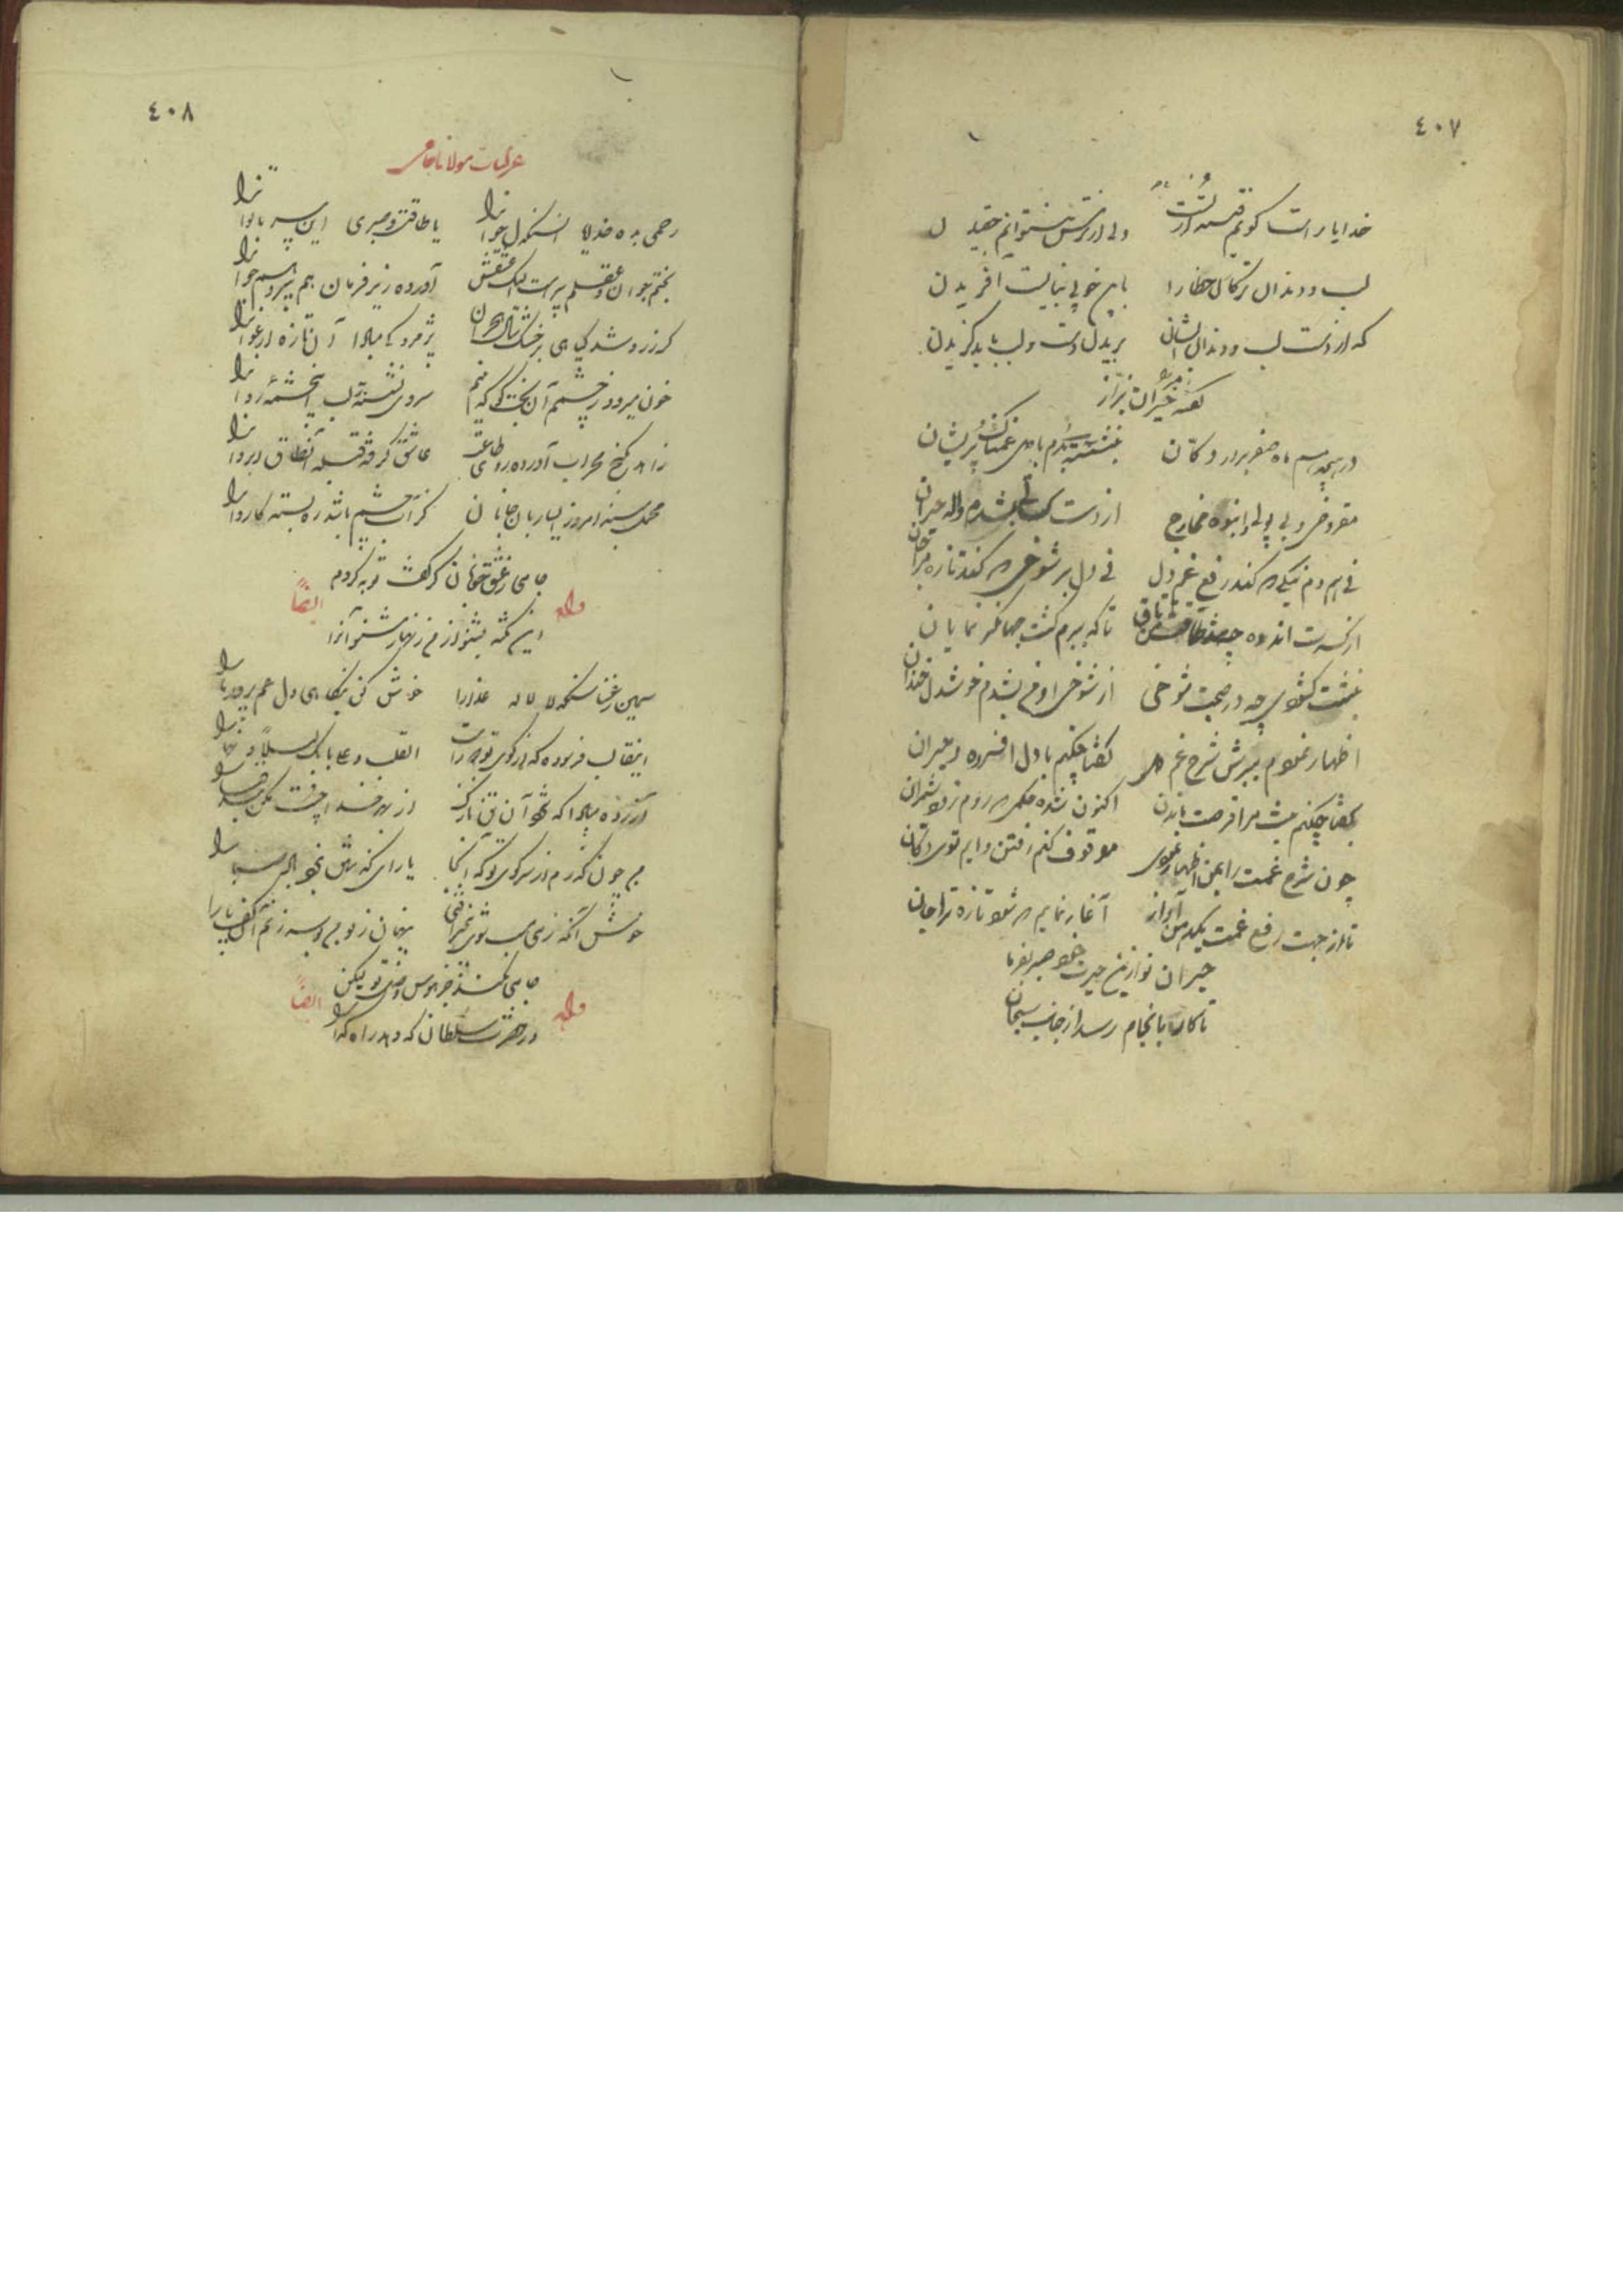 ٤٠٧
خدایا راست گویم فتنه از تست
ولی از ترس نتوانم چغیدن
لب و دندان ترکان خطا را
باین خوبی نبایست آفریدن
که از دست لب و دندان ایشان
بریدل دست و لب باید گزیدن
گفته حیران بزاز
در سم ماه صفر بر در دکان
بنشسته بدم با دل پریشان
مقروض و بی پولی و انبوه مخارج
از دست شده واله حیران
نی همدم نیکی که کند رفع غم دل
نی دلبر شوخی که کند تازه مرا جان
از کثرت اندوه
تا که برم گشت نمایان
بنشست در صحبت شوخی
از شوخی او من بشدم خوشدل خندان
اظهار نمودم ببرش شرح غم دل
گفتا چکنم با دل افسرده و حیران
گفتا چکنم نیست مرا فرصت ماندن
اکنون شده حکمی که روم زود شمران
چون شرح غمت را بمن اظهار نمودی
موقوف کنم رفتن و ایم توی دکان
تا از جهت رفع غمت یکدم من آواز
آغاز نمایم که شود تازه ترا جان
حیران تو ازین حیرت خود صبر بفرما
تا کار بانجام رسد از جانب سبحان
٤٠٨
غزلیات مولانا جامی
رحمی بده خدایا آن سنگدل جوانرا
یا طاقت و صبوری این پیر ناتوانرا
بختم جوان و عقلم پیر است لیک عشقش
آورده زیر فرمان هم پیر و هم جوانرا
گر زرد شد گیاهی بر خشکسال هجران
پژمردگی مبادا آن تازه ارغوانرا
خون میرود ز چشمم آن بخت کو که بینم
سروی نشسته بر لب این چشمه روانرا
زاهد بکنج محراب آورده روی طاعت
عاشق گرفته قبله آن طاق ابروانرا
محمل مبند امروز ای ساربان جانان
کز آب چشم باشد ره بسته کاروانرا
جامی ز عشق خوبان گر گفت توبه کردم
این نکته بشنو از من زنهار مشنو آنرا
وله ایضاً
سیمین ذقنا سنگدلا لاله عذارا
خوش کن بنگاهی دل غم پرور ما را
این قالب فرسوده گر از کوی تو دور است
القلب علی بابک لیلاً و نهارا
آزرده مبادا که شود آن تن نازک
از بهر خدا چست مکن بند قبا را
من چون گذرم از سر کوی تو که آنجا
یارای گذشتن نبود باد صبا را
خوش آنکه ز می مست شوی بیخبر افتی
پنهان ز تو من بوسه زنم آن کف پا را
جامی نکند جز هوس وصل تو لیکن
در حضرت سلطان که دهد راه گدا را
وله ایضاً